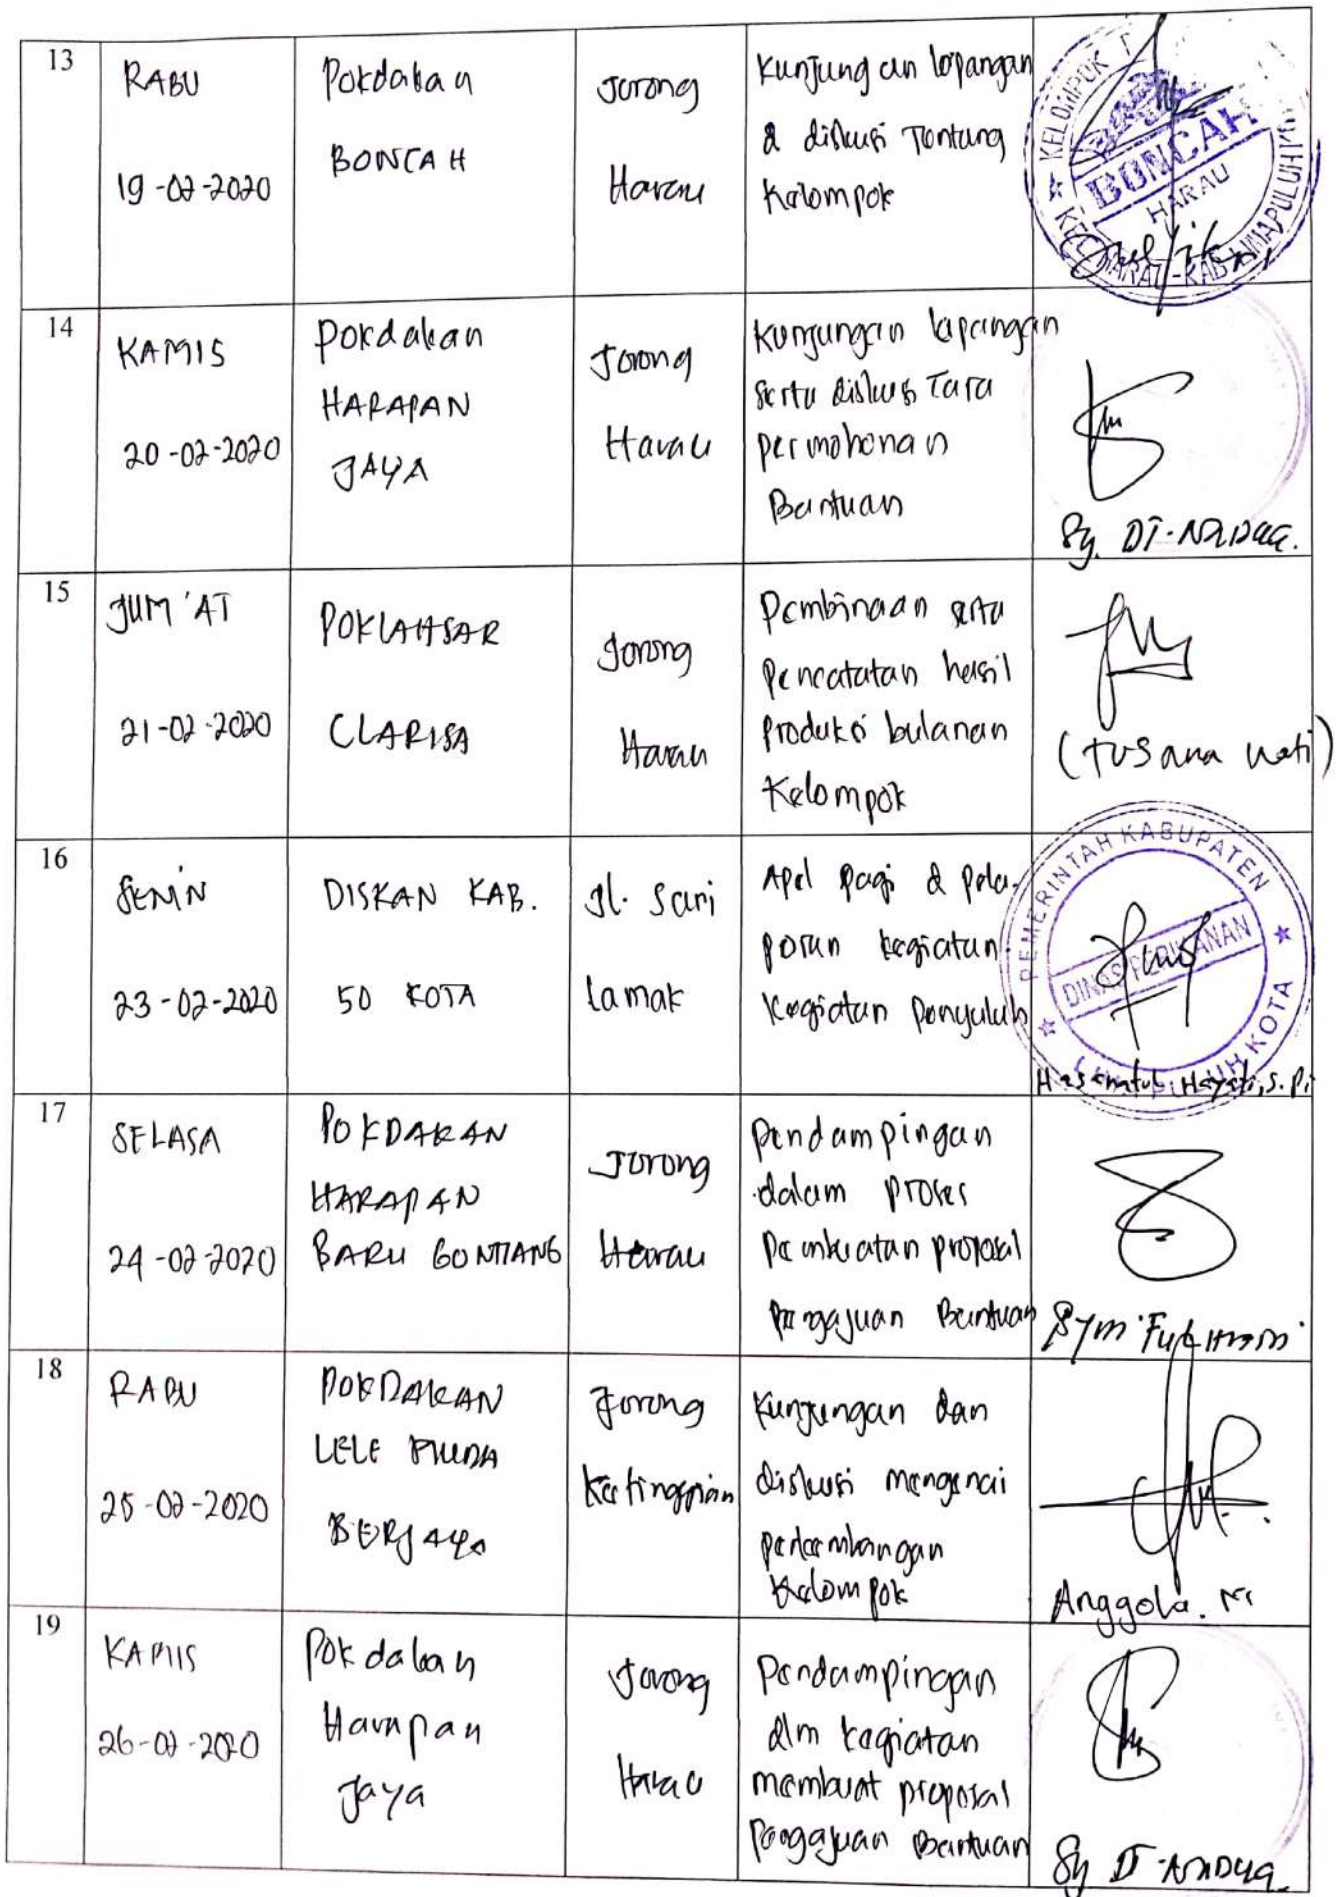 13
RABU
19-02-2020
Pokdakan
BONCAH
Jorong
Harau
Kunjungan lapangan
& diskusi Tentang
Kelompok
KELOMPOK
BONCAH
HARAU
KEC. HARAU - KAB. LIMAPULUH
14
KAMIS
20-02-2020
Pokdakan
HARAPAN
JAYA
Jorong
Harau
Kunjungan lapangan
serta diskusi Tata
permohonan
Bantuan
Sy. DT.
15
JUM'AT
21-02-2020
POKLAHSAR
CLARISA
Jorong
Harau
Pembinaan serta
Pencatatan hasil
Produksi bulanan
Kelompok
(tusana wati)
16
SENIN
23-02-2020
DISKAN KAB.
50 KOTA
Jl. Sari
lamak
Apel pagi & pela-
poran kegiatan-
Kegiatan Penyuluh
PEMERINTAH KABUPATEN
DINAS PERIKANAN
LIMA PULUH KOTA
Hasanatul Hayati, S.Pi
17
SELASA
24-02-2020
POKDAKAN
HARAPAN
BARU BONTIANG
Jorong
Harau
Pendampingan
dalam proses
Pembuatan proposal
Pengajuan Bantuan
18
RABU
25-02-2020
POKDAKAN
LELE MUDA
BERJAYA
Jorong
Ketinggian
Kunjungan dan
diskusi mengenai
perkembangan
Kelompok
Anggola.
19
KAMIS
26-02-2020
Pokdakan
Harapan
Jaya
Jorong
Harau
Pendampingan
dlm kegiatan
membuat proposal
Pengajuan Bantuan
Sy DT